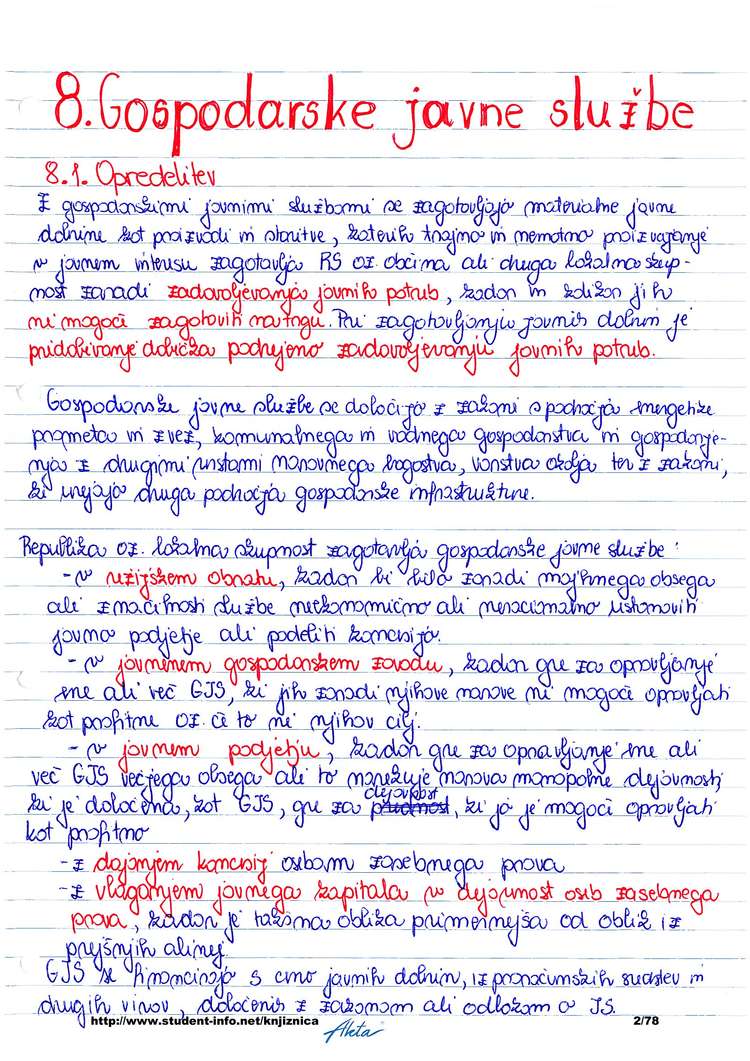 8. Gospodarske javne službe
8.1. Opredelitev
Z gospodarskimi javnimi službami se zagotavljajo materialne javne
dobrine kot proizvodi in storitve, katerih trajno in nemoteno proizvajanje
v javnem interesu zagotavlja RS oz. občina ali druga lokalna skup-
nost zaradi zadovoljevanja javnih potreb, kadar in kolikor jih
ni mogoče zagotoviti na trgu. Pri zagotavljanju javnih dobrin je
pridobivanje dobička podrejeno zadovoljevanju javnih potreb.
Gospodarske javne službe se določijo z zakoni s področja energetike
prometa in zvez, komunalnega in vodnega gospodarstva in gospodarje-
nja z drugimi vrstami naravnega bogastva, varstva okolja ter z zakoni,
ki urejajo druga področja gospodarske infrastrukture.
Republika oz. lokalna skupnost zagotavlja gospodarske javne službe:
- v režijskem obratu, kadar bi bilo zaradi majhnega obsega
ali značilnosti službe neekonomično ali neracionalno ustanoviti
javno podjetje ali podeliti koncesijo.
- v javnem gospodarskem zavodu, kadar gre za opravljanje
ene ali več GJS, ki jih zaradi njihove narave ni mogoče opravljati
kot profitne oz. če to ni njihov cilj.
- v javnem podjetju, kadar gre za opravljanje ene ali
več GJS večjega obsega ali to narekuje narava monopolne dejavnosti,
ki je določena, kot GJS, gre za dejavnost, ki jo je mogoče opravljati
kot profitno
- z dajanjem koncesij osebam zasebnega prava
- z vlaganjem javnega kapitala v dejavnost oseb zasebnega
prava, kadar je takšna oblika primernejša od oblik iz
prejšnjih alinej.
GJS se financirajo s ceno javnih dobrin, iz proračunskih sredstev in
drugih virov, določenih z zakonom ali odlokom o JS.
http://www.student-info.net/knjiznica
Akta
2/78